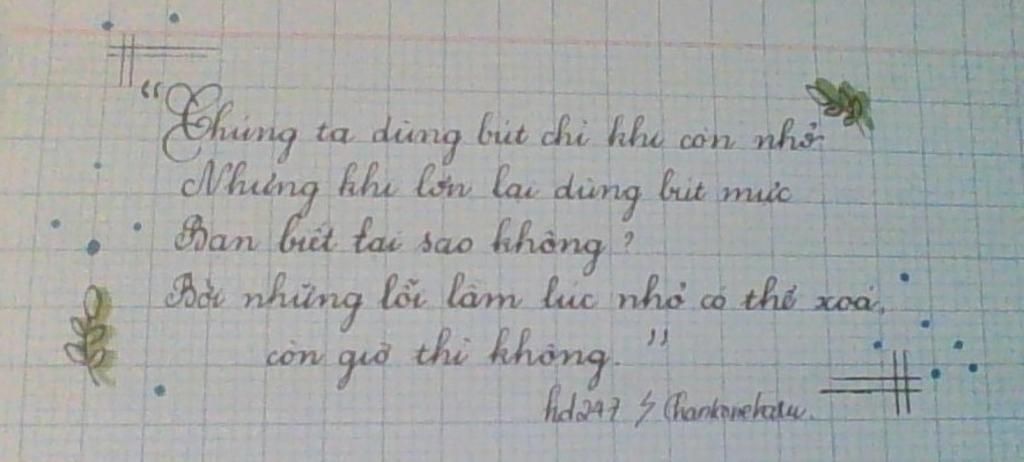 “Chúng ta dùng bút chì khi còn nhỏ
Nhưng khi lớn lại dùng bút mực
Bạn biết tại sao không?
Bởi những lỗi lầm lúc nhỏ có thể xoá,
còn giờ thì không.”
hd247